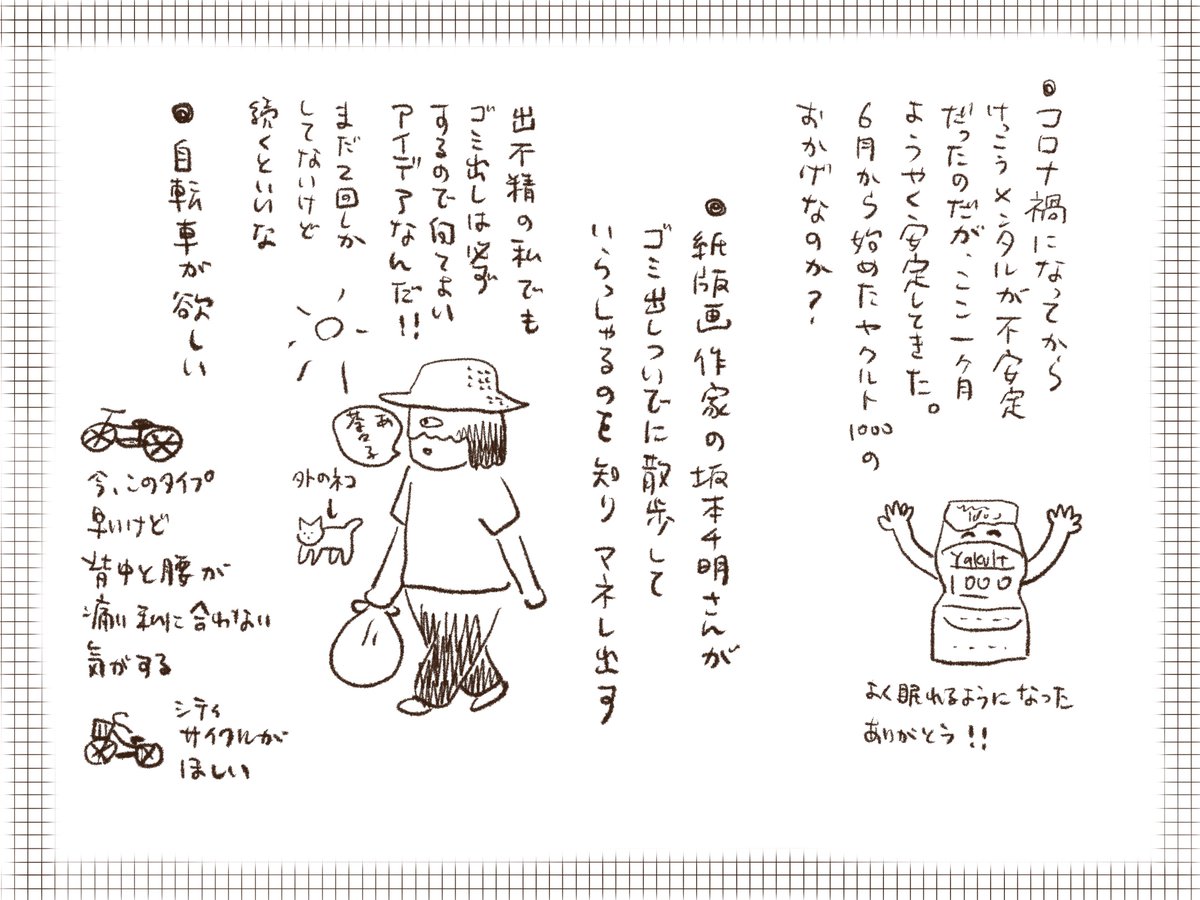 ◉コロナ禍になってから
けっこうメンタルが不安定
だったのだが、ここ一ヶ月
ようやく安定してきた。
6月から始めたヤクルト1000の
おかげなのか?
1000
Yakult
1000
よく眠れるようになった
ありがとう!!
◉紙版画作家の坂本千明さんが
ゴミ出しついでに散歩して
いらっしゃるのを知りマネし出す
出不精の私でも
ゴミ出しは必ず
するので何てよい
アイデアなんだ!!
まだ2回しか
してないけど
続くといいな
あ
茶子
外のネコ
◉自転車が欲しい
今、このタイプ
早いけど
背中と腰が
痛い私に合わない
気がする
シティ
サイクルが
ほしい